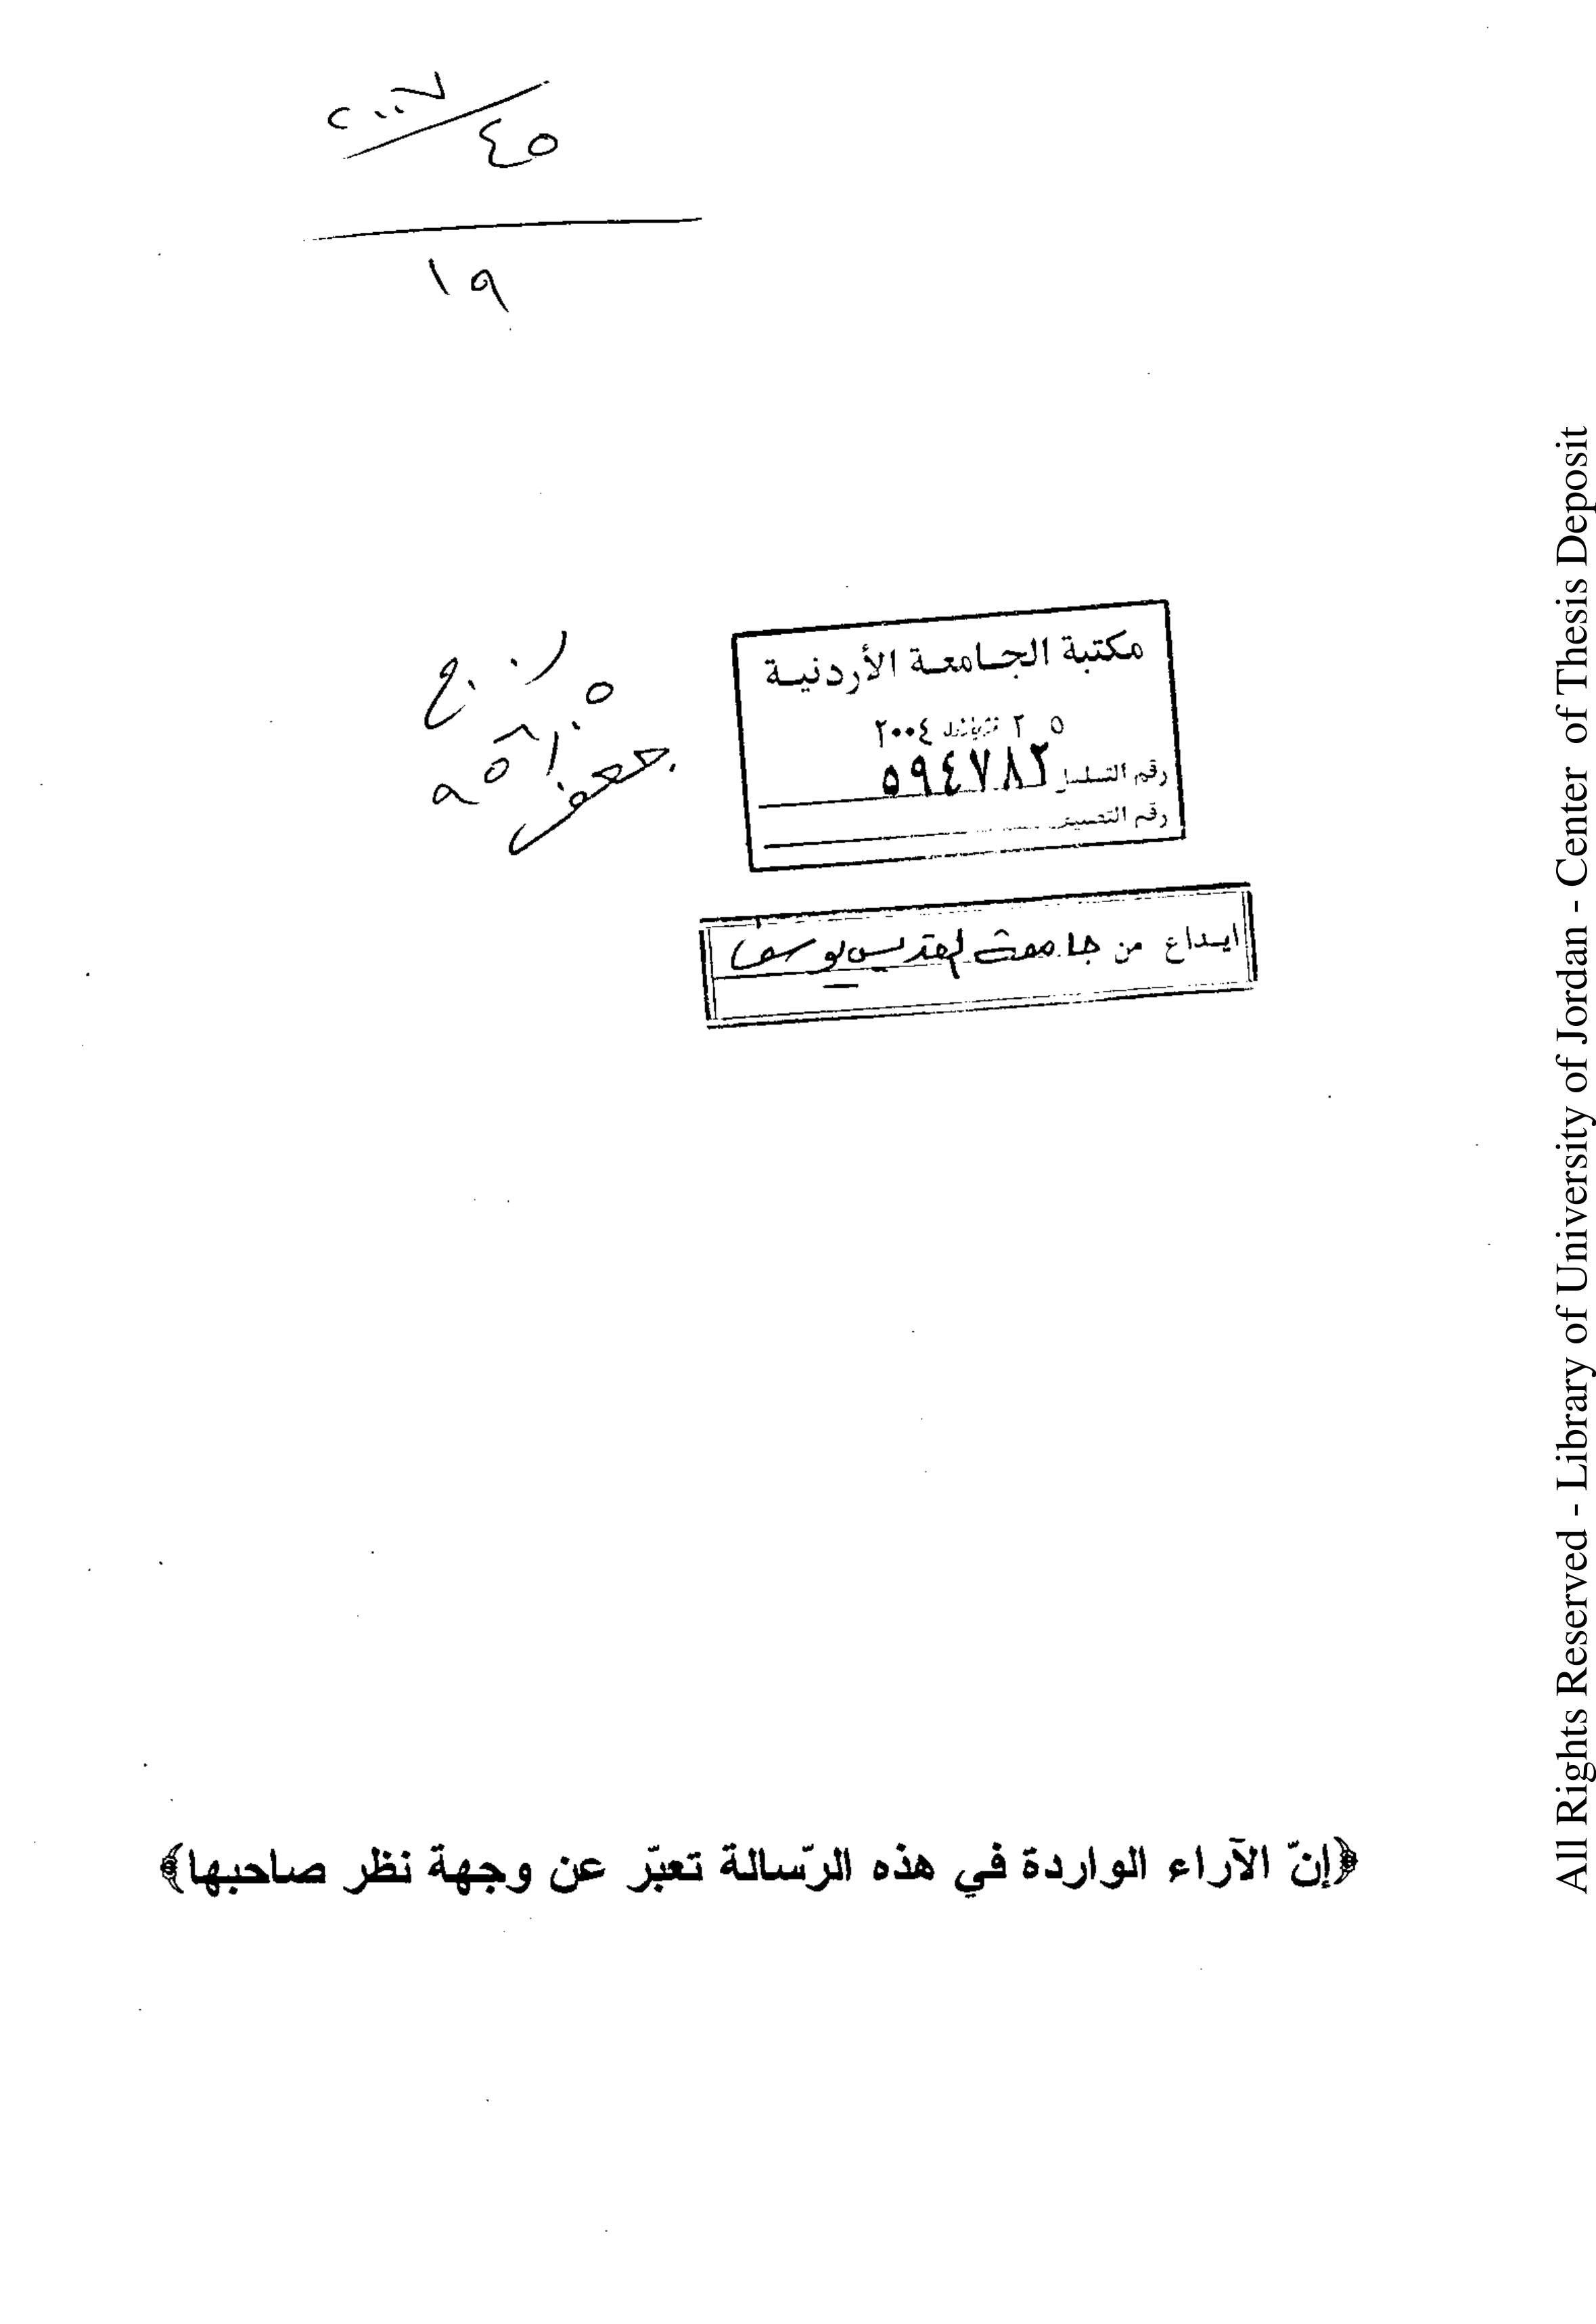 ٢٠٠٧
٤٥
١٩
مكتبة الجامعة الأردنية
٢٠٠٤
رقم التسلسل ٥٩٤٧٨٢
رقم التصنيف
ايداع من جامعة القديس يوسف
جعفر
﴿إنّ الآراء الواردة في هذه الرّسالة تعبّر عن وجهة نظر صاحبها﴾
All Rights Reserved - Library of University of Jordan - Center of Thesis Deposit